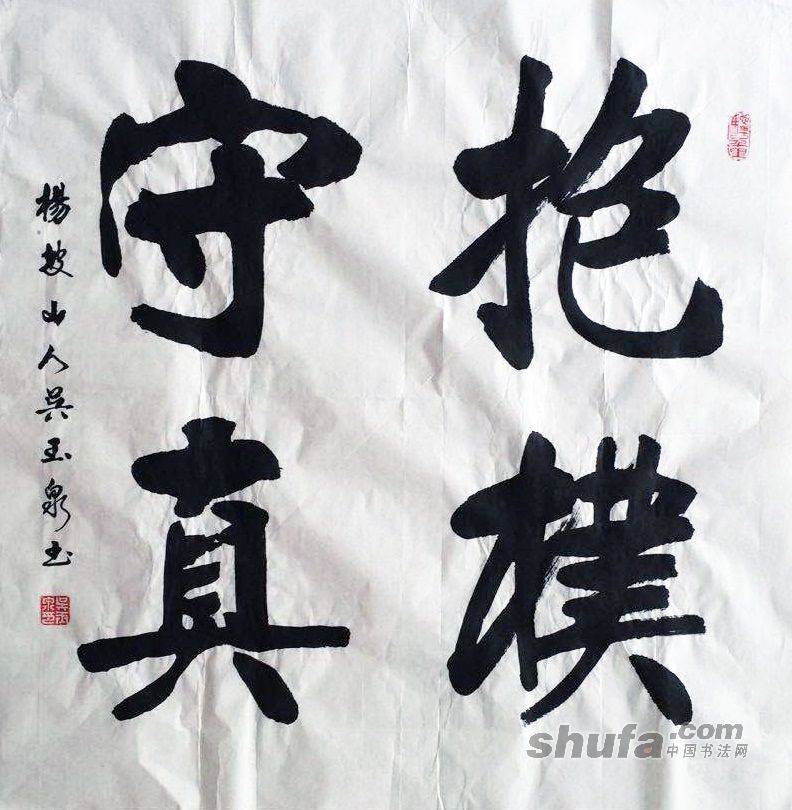 抱樸
守真
楊坡山人吳玉泉书
shufa.com
中国书法网